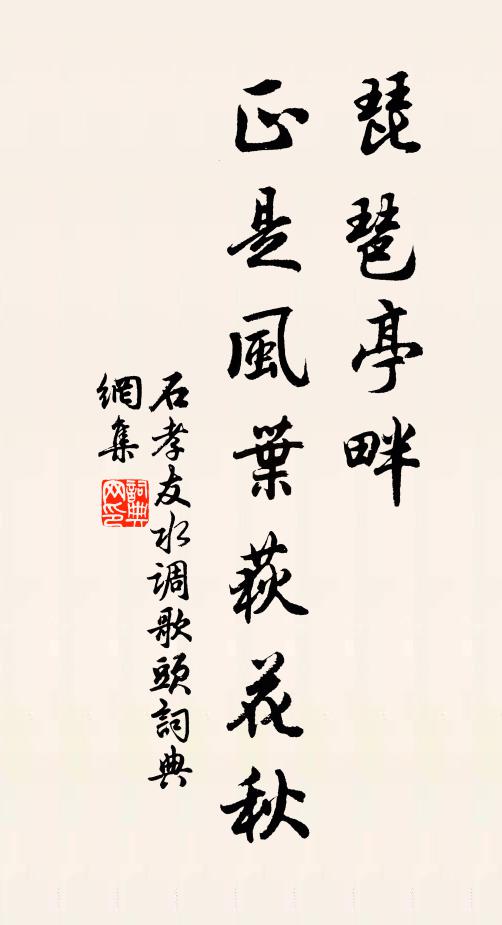 琵琶亭畔
正是風葉荻花秋
石孝友水调歌頭詞典
網集
詞典
网印